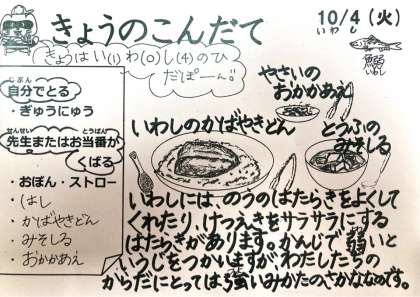 きょうのこんだて
10/4(火)
いわし
きょうはい(1)わ(0)し(4)のひ
だぽーん!!
鰯
いわし
じぶん
自分でとる
・ぎゅうにゅう
せんせい とうばん
先生またはお当番が
くばる
・おぼん・ストロー
・はし
・かばやきどん
・みそしる
・おかかあえ
やさいの
おかかあえ
いわしのかばやきどん
とうふの
みそしる
いわしには、のうのはたらきをよくして
くれたり、けつえきをサラサラにする
はたらきがあります。かんじで弱いと
いうじをつかいますがわたしたちの
からだにとっては強いみかたの、さかななのです。